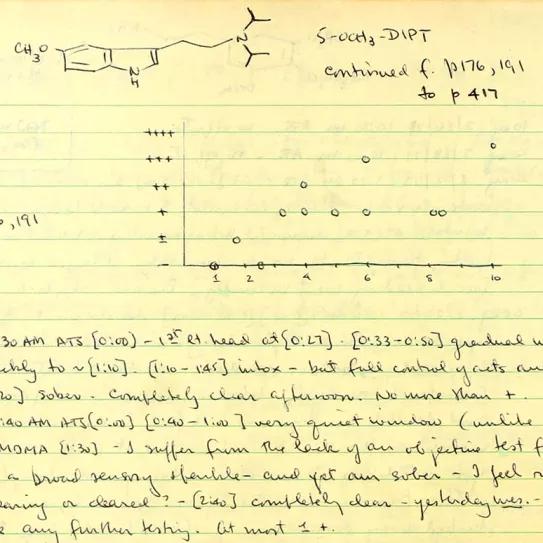 CH₃O
N
N
H
5-OCH₃-DIPT
continued f. p176, 191
to p 417
++++
+++
++
+
±
-
1 2 4 6 8 10
, 191
30 AM ATS [0:00) - 1st lt. head at [0:27]. [0:33-0:50] gradual
to ~[1:10]. [1:10-1:45] intox - but full control of acts
20] sober. Completely clear afternoon. No more than +.
:40 AM ATS [0:00] [0:40-1:00] very quiet window (unlike
MDMA [1:30] - I suffer from the lack of an objective test
a broad sensory - and yet am sober - I feel
or cleared? - [2:40] completely clean - yesterday was. -
any further testing. At most 1 +.